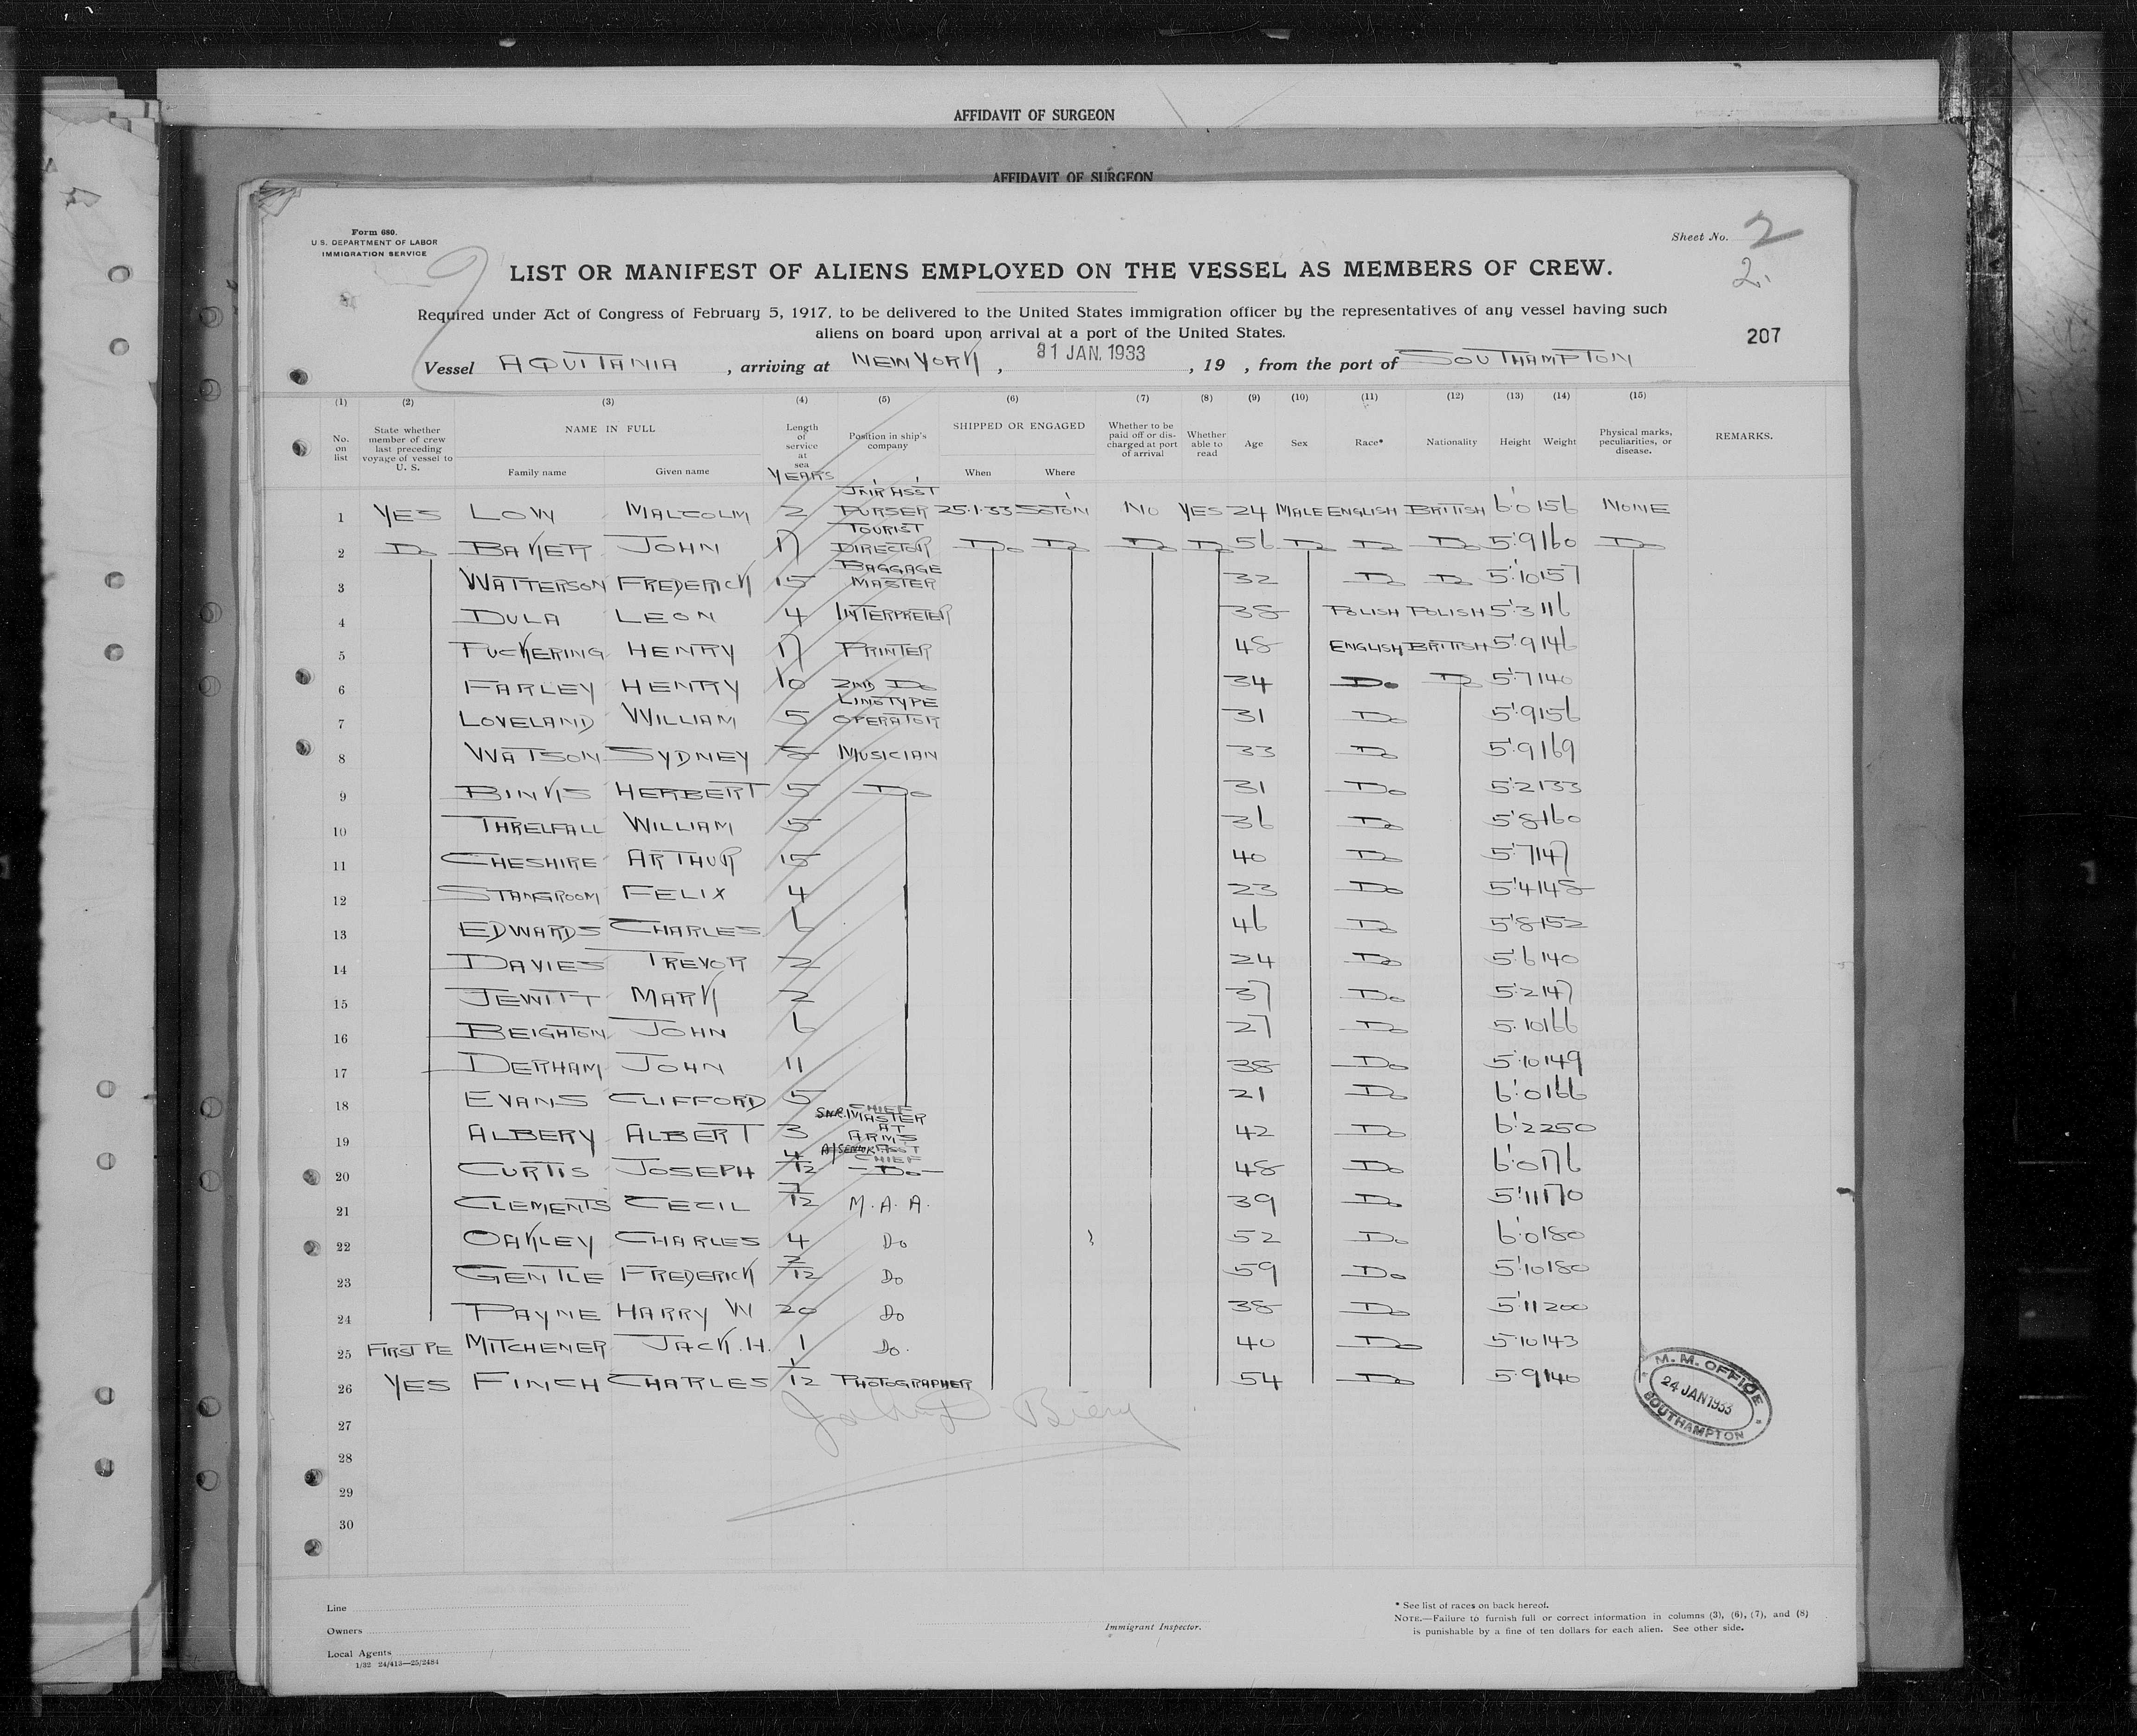 AFFIDAVIT OF SURGEON
AFFIDAVIT OF SURGEON
Form 680.
U.S. DEPARTMENT OF LABOR
IMMIGRATION SERVICE
Sheet No. 2
2.
LIST OR MANIFEST OF ALIENS EMPLOYED ON THE VESSEL AS MEMBERS OF CREW.
Required under Act of Congress of February 5, 1917, to be delivered to the United States immigration officer by the representatives of any vessel having such
aliens on board upon arrival at a port of the United States.
207
Vessel AQUITANIA, arriving at NEW YORK, 31 JAN. 1933, 19 , from the port of SOUTHAMPTON
(1) (2) (3) (4) (5) (6) (7) (8) (9) (10) (11) (12) (13) (14) (15)
No. on list State whether member of crew last preceding voyage of vessel to U. S. NAME IN FULL Family name Given name Length of service at sea YEARS Position in ship's company SHIPPED OR ENGAGED When Where Whether to be paid off or discharged at port of arrival Whether able to read Age Sex Race* Nationality Height Weight Physical marks, peculiarities, or disease. REMARKS.
1 YES LOW MALCOLM 2 JNR ASST PURSER 25.1.33 SOTON NO YES 24 MALE ENGLISH BRITISH 6'0 156 NONE
2 Do BAKER JOHN 17 TOURIST DIRECTOR Do Do Do Do 56 Do Do Do 5'9 160 Do
3 WATTERSON FREDERICK 15 BAGGAGE MASTER 32 Do Do 5'10 157
4 DULA LEON 4 INTERPRETER 38 POLISH POLISH 5'3 116
5 PUCKERING HENRY 17 PRINTER 48 ENGLISH BRITISH 5'9 146
6 FARLEY HENRY 10 2ND Do 34 Do Do 5'7 140
7 LOVELAND WILLIAM 5 LINOTYPE OPERATOR 31 Do 5'9 156
8 WATSON SYDNEY 8 MUSICIAN 33 Do 5'9 169
9 BINKS HERBERT 5 Do 31 Do 5'2 133
10 THRELFALL WILLIAM 5 36 Do 5'8 160
11 CHESHIRE ARTHUR 15 40 Do 5'7 147
12 STANGROOM FELIX 4 23 Do 5'4 148
13 EDWARDS CHARLES 6 46 Do 5'8 152
14 DAVIES TREVOR 2 24 Do 5'6 140
15 JEWITT MARK 2 37 Do 5'2 147
16 BEIGHTON JOHN 6 27 Do 5'10 166
17 DERHAM JOHN 11 38 Do 5'10 149
18 EVANS CLIFFORD 5 21 Do 6'0 166
19 ALBERY ALBERT 3 CHIEF MASTER AT ARMS 42 Do 6'2 250
20 CURTIS JOSEPH 4/12 ASST CHIEF Do 48 Do 6'0 176
21 CLEMENTS CECIL 7/12 M.A.A. 39 Do 5'11 170
22 OAKLEY CHARLES 4 Do 52 Do 6'0 180
23 GENTLE FREDERICK 2/12 Do 59 Do 5'10 180
24 PAYNE HARRY W 20 Do 38 Do 5'11 200
25 FIRST PE MITCHENER JACK.H. 1 Do. 40 Do 5'10 143
26 YES FINCH CHARLES 1/12 PHOTOGRAPHER 54 Do 5'9 140
27
28
29
30
M. M. OFFICE
24 JAN 1933
SOUTHAMPTON
Line
Owners
Local Agents
1/32 24/413—25/2484
Immigrant Inspector.
* See list of races on back hereof.
NOTE.—Failure to furnish full or correct information in columns (3), (6), (7), and (8)
is punishable by a fine of ten dollars for each alien. See other side.